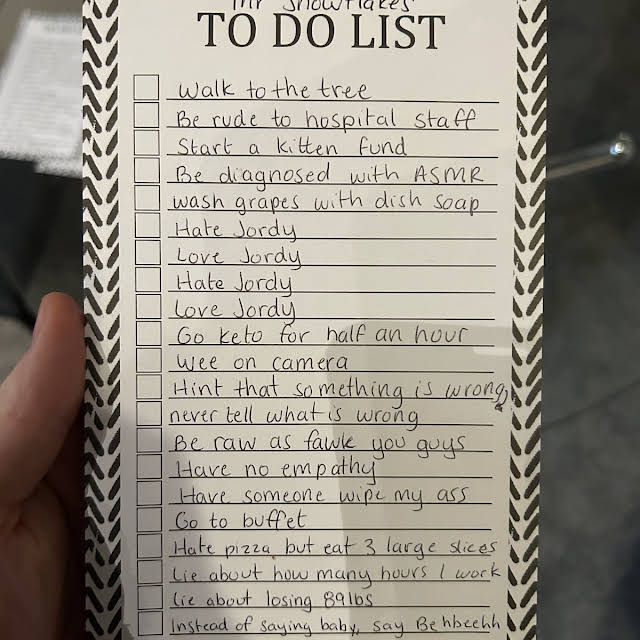 Mr Snowflakes
TO DO LIST
Walk to the tree
Be rude to hospital staff
Start a kitten fund
Be diagnosed with ASMR
wash grapes with dish soap
Hate Jordy
Love Jordy
Hate Jordy
Love Jordy
Go keto for half an hour
wee on camera
Hint that something is wrong,
never tell what is wrong
Be raw as fawk you guys
Have no empathy
Have someone wipe my ass
Go to buffet
Hate pizza, but eat 3 large slices
Lie about how many hours I work
Lie about losing 89lbs
Instead of saying baby, say Behbeehh